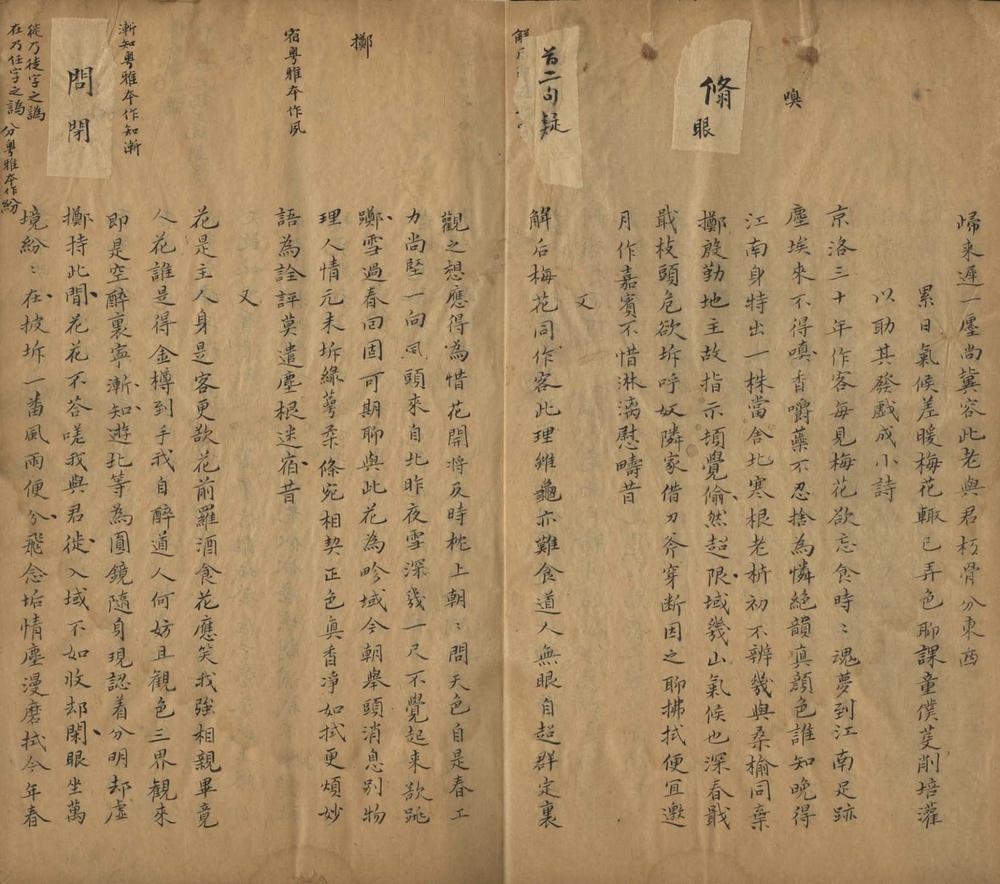 嗅
翛
眼
首二句疑
歸来遲一廛尚冀容此老與君朽骨分東西
累日氣候差暖梅花輙已弄色聊課童僕芟削培灌
以助其發戲成小詩
京洛三十年作客每見梅花欲忘食時〻魂夢到江南足跡
塵埃来不得嗅香嚼蘂不忍捨為憐絶韻真顔色誰知晚得
江南身特出一株當舍北寒根老枿初不辨幾與桑榆同棄
擲殷勤地主故指示頓覺翛然超限域幾山氣候也深春戢
戢枝頭危欲坼呼奴隣家借刀斧穿斷因之聊拂拭便宜邀
月作嘉賓不惜淋漓慰疇昔
又
解后梅花同作客此理雖龜亦難食道人無眼自超群定裏
擲
宿粤雅本作夙
漸知粤雅本作知漸
問
閉
從乃徒字之譌
在乃任字之譌 分粤雅本作紛
觀之想應得為惜花開將及時枕上朝〻問天色自是春工
力尚堅一向風頭來自北昨夜雪深幾一尺不覺起来欲跳
躑雪過春回固可期聊與此花為畛域今朝舉頭消息别物
理人情元未坼緑萼柔條宛相契正色真香淨如拭更煩妙
語為詮評莫遣塵根迷宿昔
又
花是主人身是客更欲花前羅酒食花應笑我強相親畢竟
人花誰是得金樽到手我自醉道人何妨且觀色三界觀来
即是空醉裏寧漸知遊北等為圓鏡隨身現認着分明却虛
擲持此閒花花不答嗟我與君從入域不如收却閑眼坐萬
境紛〻在披坼一番風雨便分飛念垢情塵漫磨拭今年春